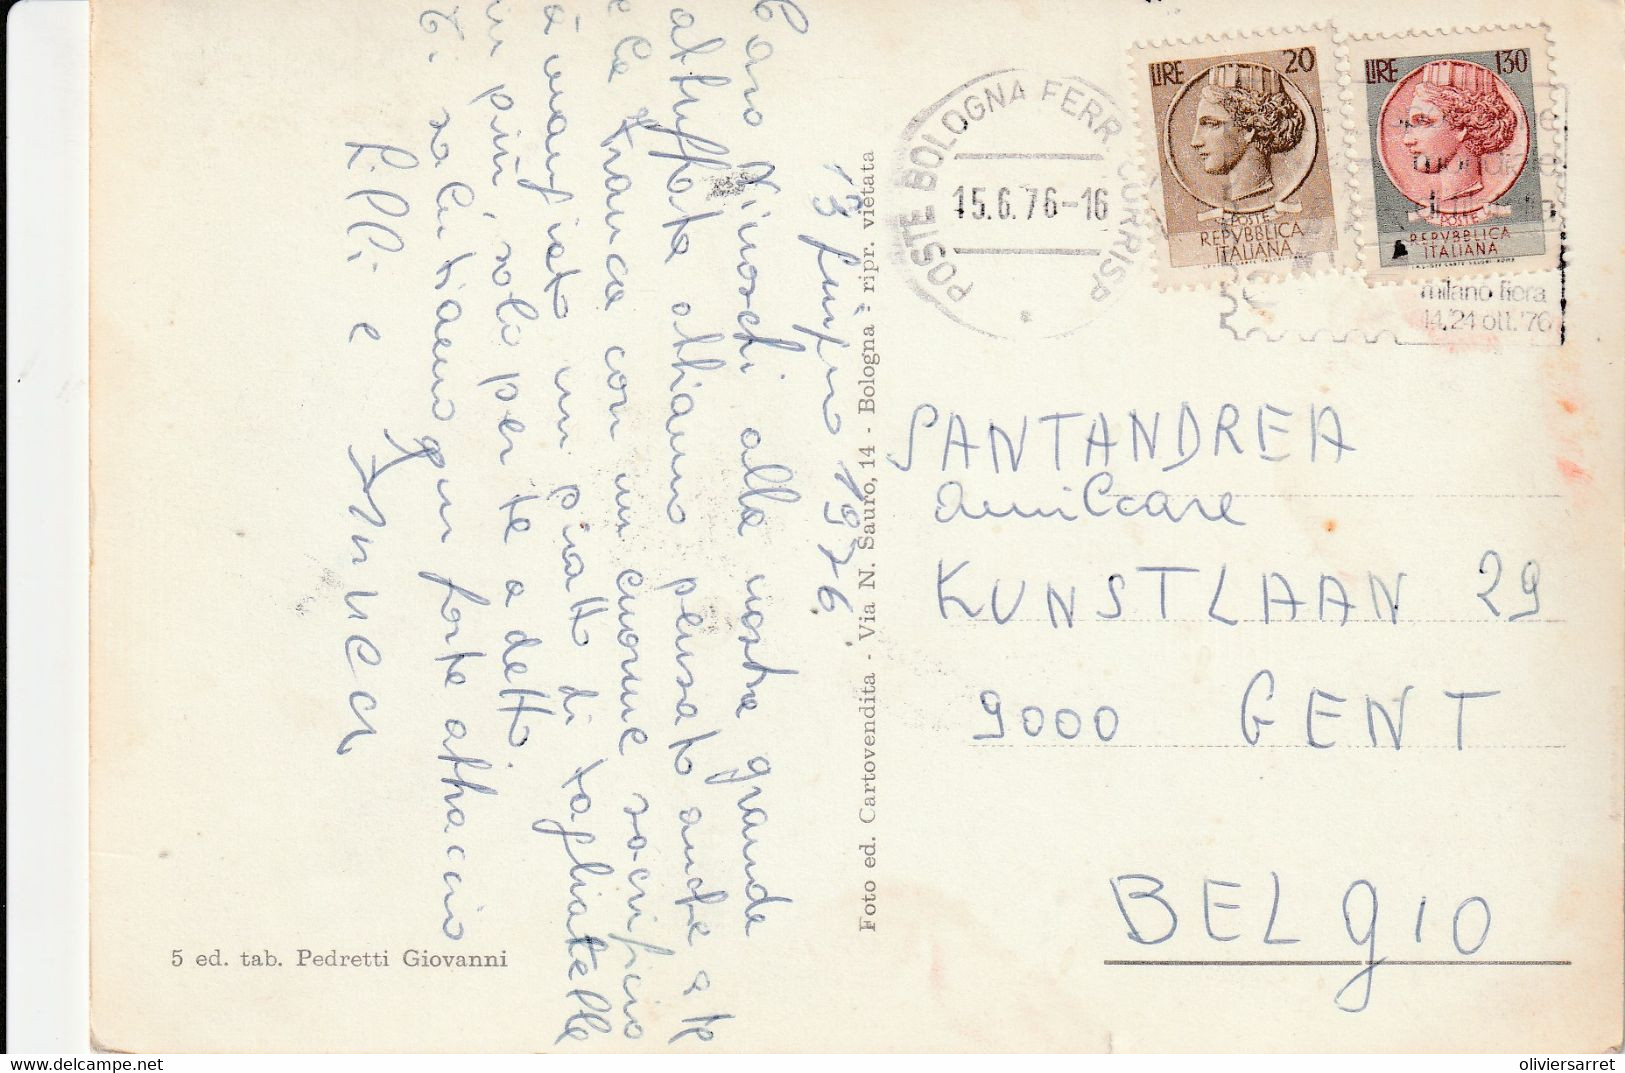 13 giugno 1976
Caro Nimoschi alla nostra grande
abbuffata abbiamo pensato anche a te
e la Franca con un enorme sacrificio
à mangiato un piatto di tagliatelle
in più, solo per te a detto.
Ti salutiamo gun forte abbraccio
Lilli e Franca
5 ed. tab. Pedretti Giovanni
Foto ed. Cartovendita - Via N. Sauro, 14 - Bologna - ripr. vietata
POSTE BOLOGNA FERR CORRISP
15.6.76-16
LIRE 20
POSTE
REPVBBLICA
ITALIANA
LIRE 130
POSTE
REPVBBLICA
ITALIANA
milano fiera
14.24 ott. '76
SANTANDREA
Amilcare
KUNSTLAAN 29
9000 GENT
BELGIO
delcampe.net
oliviersarret